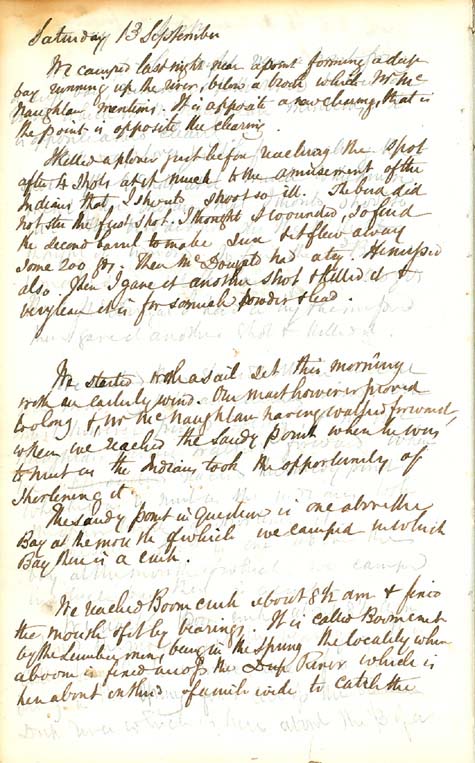 Saturday 13 September
We camped last night near a point forming a deep
bay running up the river, below a brook which Mr Mc
Naughlan mentions. It is opposite a new clearing, that is
the point is opposite the clearing.
Killed a plover just before reaching the spot
after 4 shots at it much to the amusement of the
Indians that I should shoot so ill. The bird did
not stir the first shot. I thought I wounded, so fired
the second barrel to make sure & it flew away
some 200 yds. Then McDougald had a try. He missed
also. Then I gave it another shot & killed it &
very lean it is for so much powder & lead.
We started with a sail set this morning
with an easterly wind. Our mast however proved
too long & Mr McNaughlan having walked forward,
when we reached the sandy point where he was
to meet us the Indians took the opportunity of
shortening it.
The sandy point in question is one above the
Bay at the mouth of which we camped in which
Bay there is a creek.
We reached Boom creek about 8½ am & fixed
the mouth of it by bearings. It is called Boom creek
by the Lumber men, being in the Spring the locality when
a boom is fixed across the Deep River which is
here about one third of a mile wide to catch the